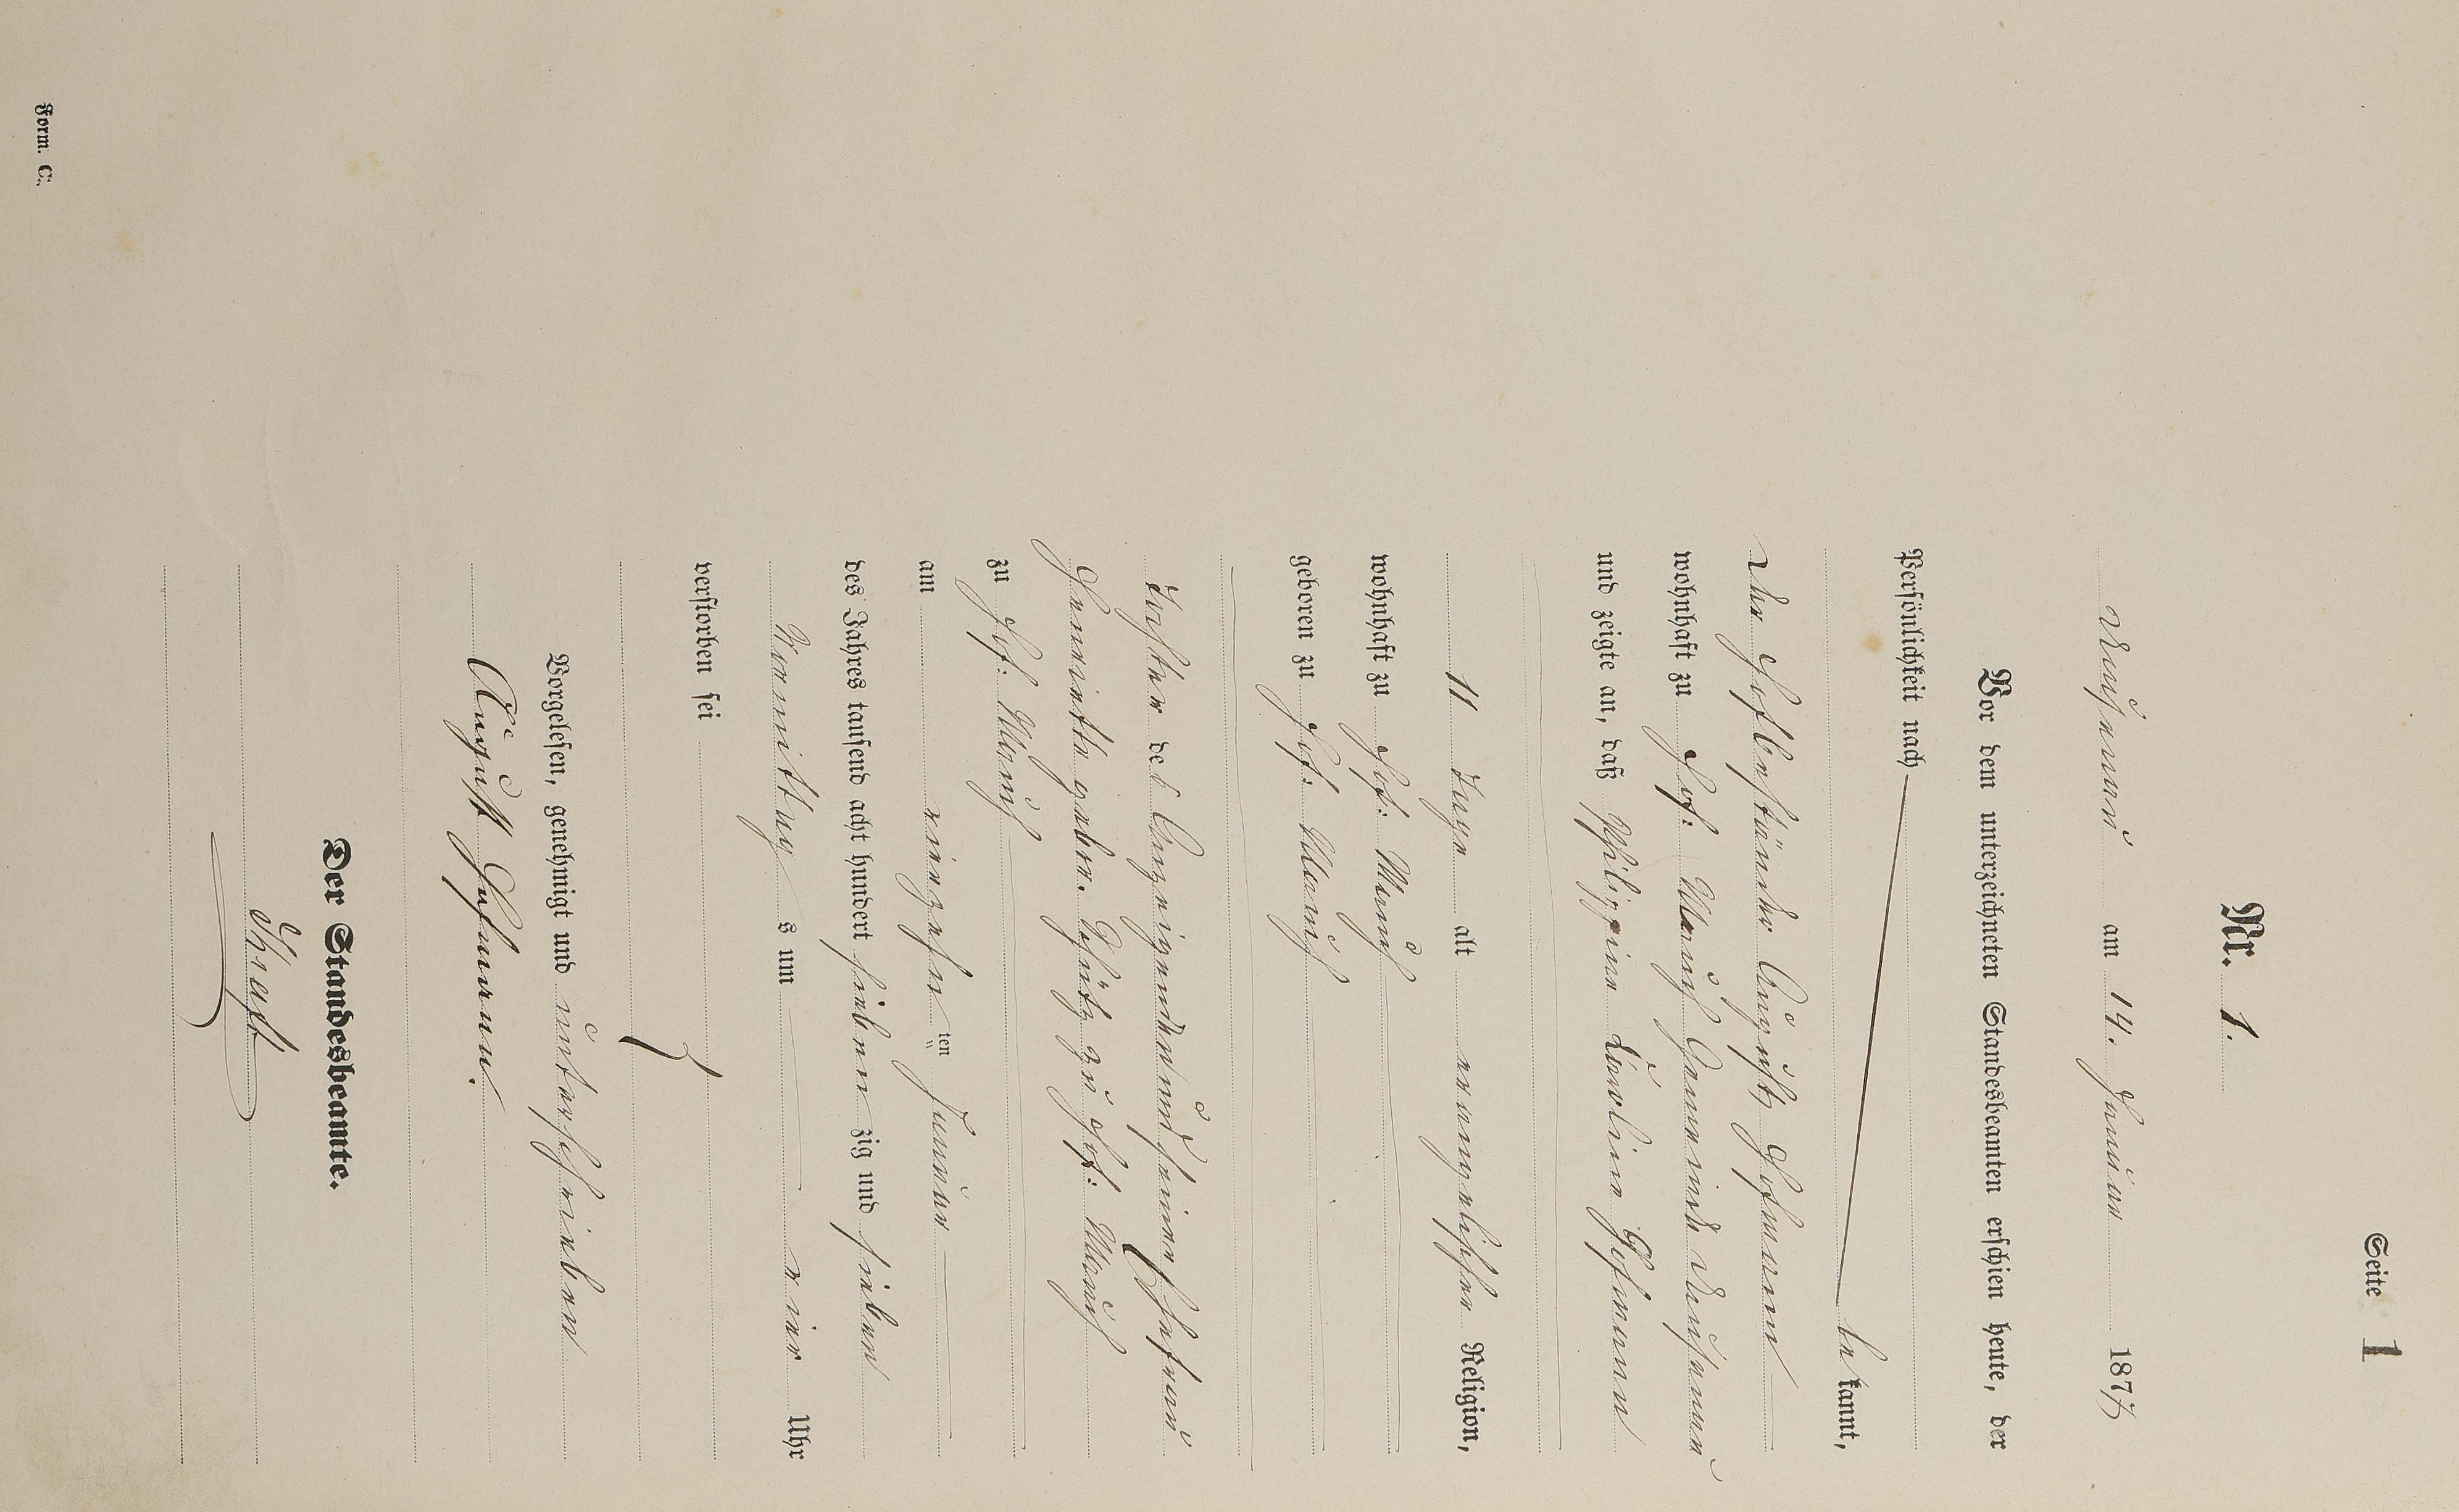 Seite 1
Nr. 1.
am 14. Januar 1877
Vor dem unterzeichneten Standesbeamten erschien heute, der
Persönlichkeit nach
bekannt,
der Hofbeständer August Hofmann
wohnhaft zu Hof: Gemeinde
und zeigte an, daß Philippine Karoline Hofmann
11 Tage alt evangelischer Religion,
wohnhaft zu Hof:
geboren zu Hof:
Tochter des Anzeigenden und seiner Ehefrau
Henriette gebor. Schütz zu Hof:
zu Hof:
am vierzehnten Januar
des Jahres tausend acht hundert siebenzig und sieben
Vormittags um vier Uhr
verstorben sei
Vorgelesen, genehmigt und unterschrieben
August Hofmann.
Der Standesbeamte.
Form. C.